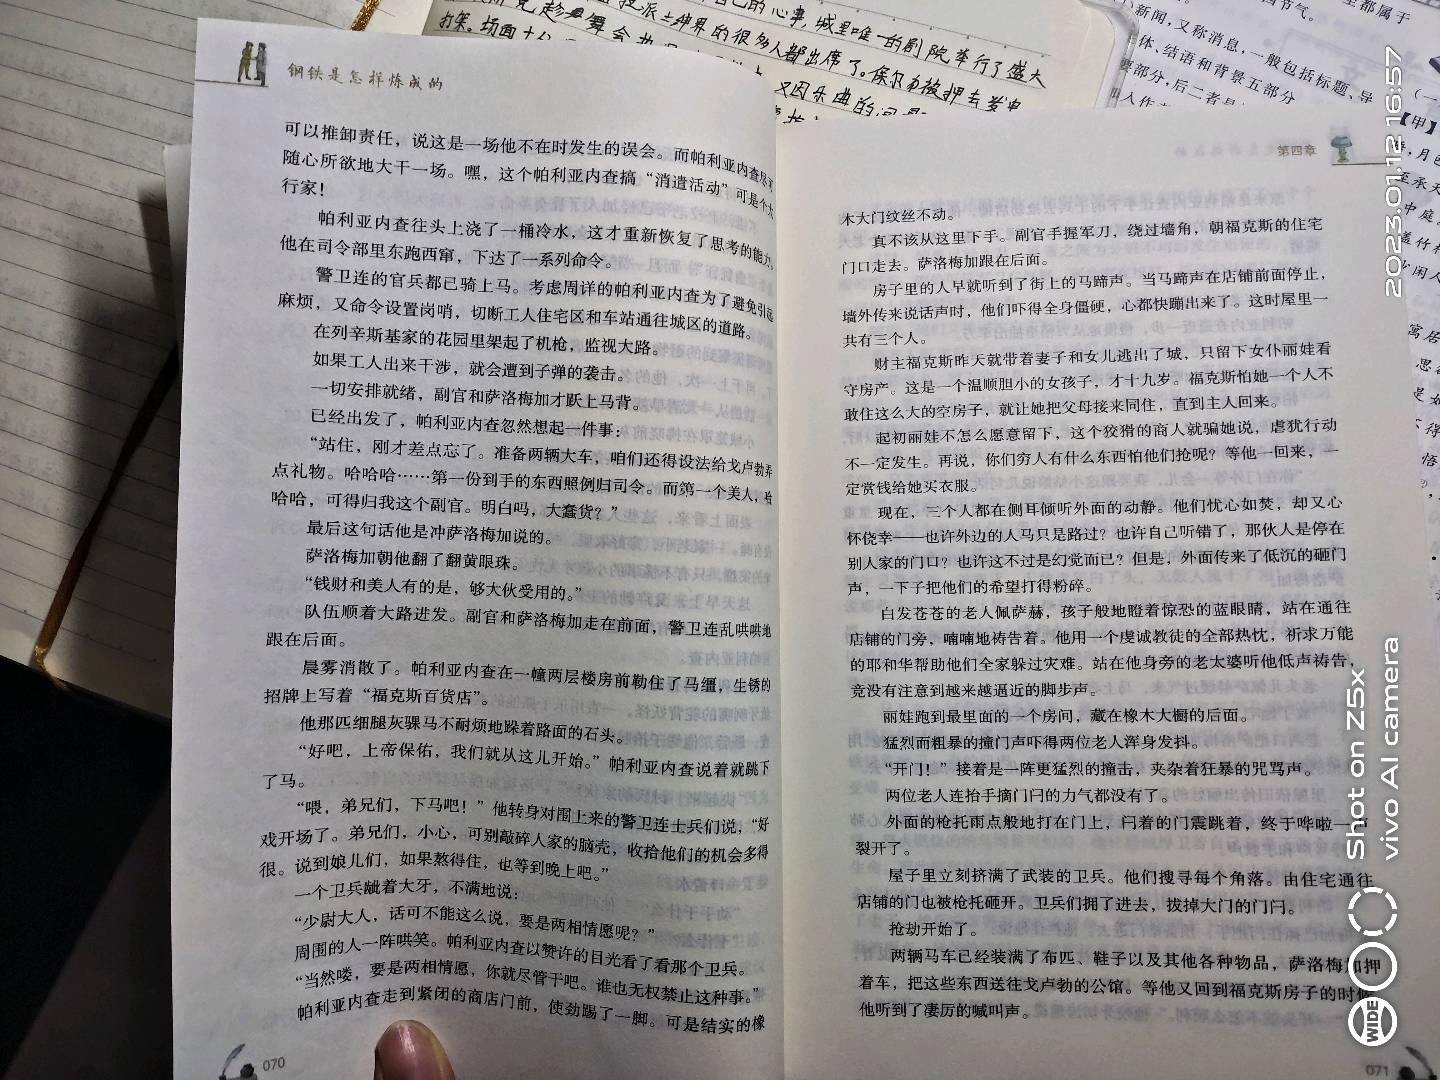 己的心事,城里唯一的剧院举行了盛大
趁舞会
派士绅界的很多人都出席了。保尔
打架。场面十分
又因乐曲的
小新闻,又称消息,一般包括标题、导
体、结语和背景五部分
要部分,后二者是
节气。
都属于
【甲】
月色
至承天
中庭
盖竹
少闲人
钢铁是怎样炼成的
可以推卸责任，说这是一场他不在时发生的误会。而帕利亚内查尽可
随心所欲地大干一场。嘿，这个帕利亚内查搞“消遣活动”可是个大
行家！
帕利亚内查往头上浇了一桶冷水，这才重新恢复了思考的能力。
他在司令部里东跑西窜，下达了一系列命令。
警卫连的官兵都已骑上马。考虑周详的帕利亚内查为了避免引起
麻烦，又命令设置岗哨，切断工人住宅区和车站通往城区的道路。
在列辛斯基家的花园里架起了机枪，监视大路。
如果工人出来干涉，就会遭到子弹的袭击。
一切安排就绪，副官和萨洛梅加才跃上马背。
已经出发了，帕利亚内查忽然想起一件事：
“站住，刚才差点忘了。准备两辆大车，咱们还得设法给戈卢勃弄
点礼物。哈哈哈……第一份到手的东西照例归司令。而第一个美人，哈
哈哈，可得归我这个副官。明白吗，大蠢货？”
最后这句话他是冲萨洛梅加说的。
萨洛梅加朝他翻了翻黄眼珠。
“钱财和美人有的是，够大伙受用的。”
队伍顺着大路进发。副官和萨洛梅加走在前面，警卫连乱哄哄地
跟在后面。
晨雾消散了。帕利亚内查在一幢两层楼房前勒住了马缰，生锈的
招牌上写着“福克斯百货店”。
他那匹细腿灰骒马不耐烦地跺着路面的石头。
“好吧，上帝保佑，我们就从这儿开始。”帕利亚内查说着就跳下
了马。
“喂，弟兄们，下马吧！”他转身对围上来的警卫连士兵们说，“好
戏开场了。弟兄们，小心，可别敲碎人家的脑壳，收拾他们的机会多得
很。说到娘儿们，如果熬得住，也等到晚上吧。”
一个卫兵龇着大牙，不满地说：
“少尉大人，话可不能这么说，要是两相情愿呢？”
周围的人一阵哄笑。帕利亚内查以赞许的目光看了看那个卫兵。
“当然喽，要是两相情愿，你就尽管干吧。谁也无权禁止这种事。”
帕利亚内查走到紧闭的商店门前，使劲踢了一脚。可是结实的橡
070
第四章
木大门纹丝不动。
真不该从这里下手。副官手握军刀，绕过墙角，朝福克斯的住宅
门口走去。萨洛梅加跟在后面。
房子里的人早就听到了街上的马蹄声。当马蹄声在店铺前面停止，
墙外传来说话声时，他们吓得全身僵硬，心都快蹦出来了。这时屋里一
共有三个人。
财主福克斯昨天就带着妻子和女儿逃出了城，只留下女仆丽娃看
守房产。这是一个温顺胆小的女孩子，才十九岁。福克斯怕她一个人不
敢住这么大的空房子，就让她把父母接来同住，直到主人回来。
起初丽娃不怎么愿意留下，这个狡猾的商人就骗她说，虐犹行动
不一定发生。再说，你们穷人有什么东西怕他们抢呢？等他一回来，一
定赏钱给她买衣服。
现在，三个人都在侧耳倾听外面的动静。他们忧心如焚，却又心
怀侥幸——也许外边的人马只是路过？也许自己听错了，那伙人是停在
别人家的门口？也许这不过是幻觉而已？但是，外面传来了低沉的砸门
声，一下子把他们的希望打得粉碎。
白发苍苍的老人佩萨赫，孩子般地瞪着惊恐的蓝眼睛，站在通往
店铺的门旁，喃喃地祷告着。他用一个虔诚教徒的全部热忱，祈求万能
的耶和华帮助他们全家躲过灾难。站在他身旁的老太婆听他低声祷告，
竟没有注意到越来越逼近的脚步声。
丽娃跑到最里面的一个房间，藏在橡木大橱的后面。
猛烈而粗暴的撞门声吓得两位老人浑身发抖。
“开门！”接着是一阵更猛烈的撞击，夹杂着狂暴的咒骂声。
两位老人连抬手摘门闩的力气都没有了。
外面的枪托雨点般地打在门上，闩着的门震跳着，终于哗啦一声
裂开了。
屋子里立刻挤满了武装的卫兵。他们搜寻每个角落。由住宅通往
店铺的门也被枪托砸开。卫兵们拥了进去，拔掉大门的门闩。
抢劫开始了。
两辆马车已经装满了布匹、鞋子以及其他各种物品，萨洛梅加押
着车，把这些东西送往戈卢勃的公馆。等他又回到福克斯房子的时候，
他听到了凄厉的喊叫声。
071
2023.01.12 16:57
Shot on Z5x
vivo AI camera
WIDE